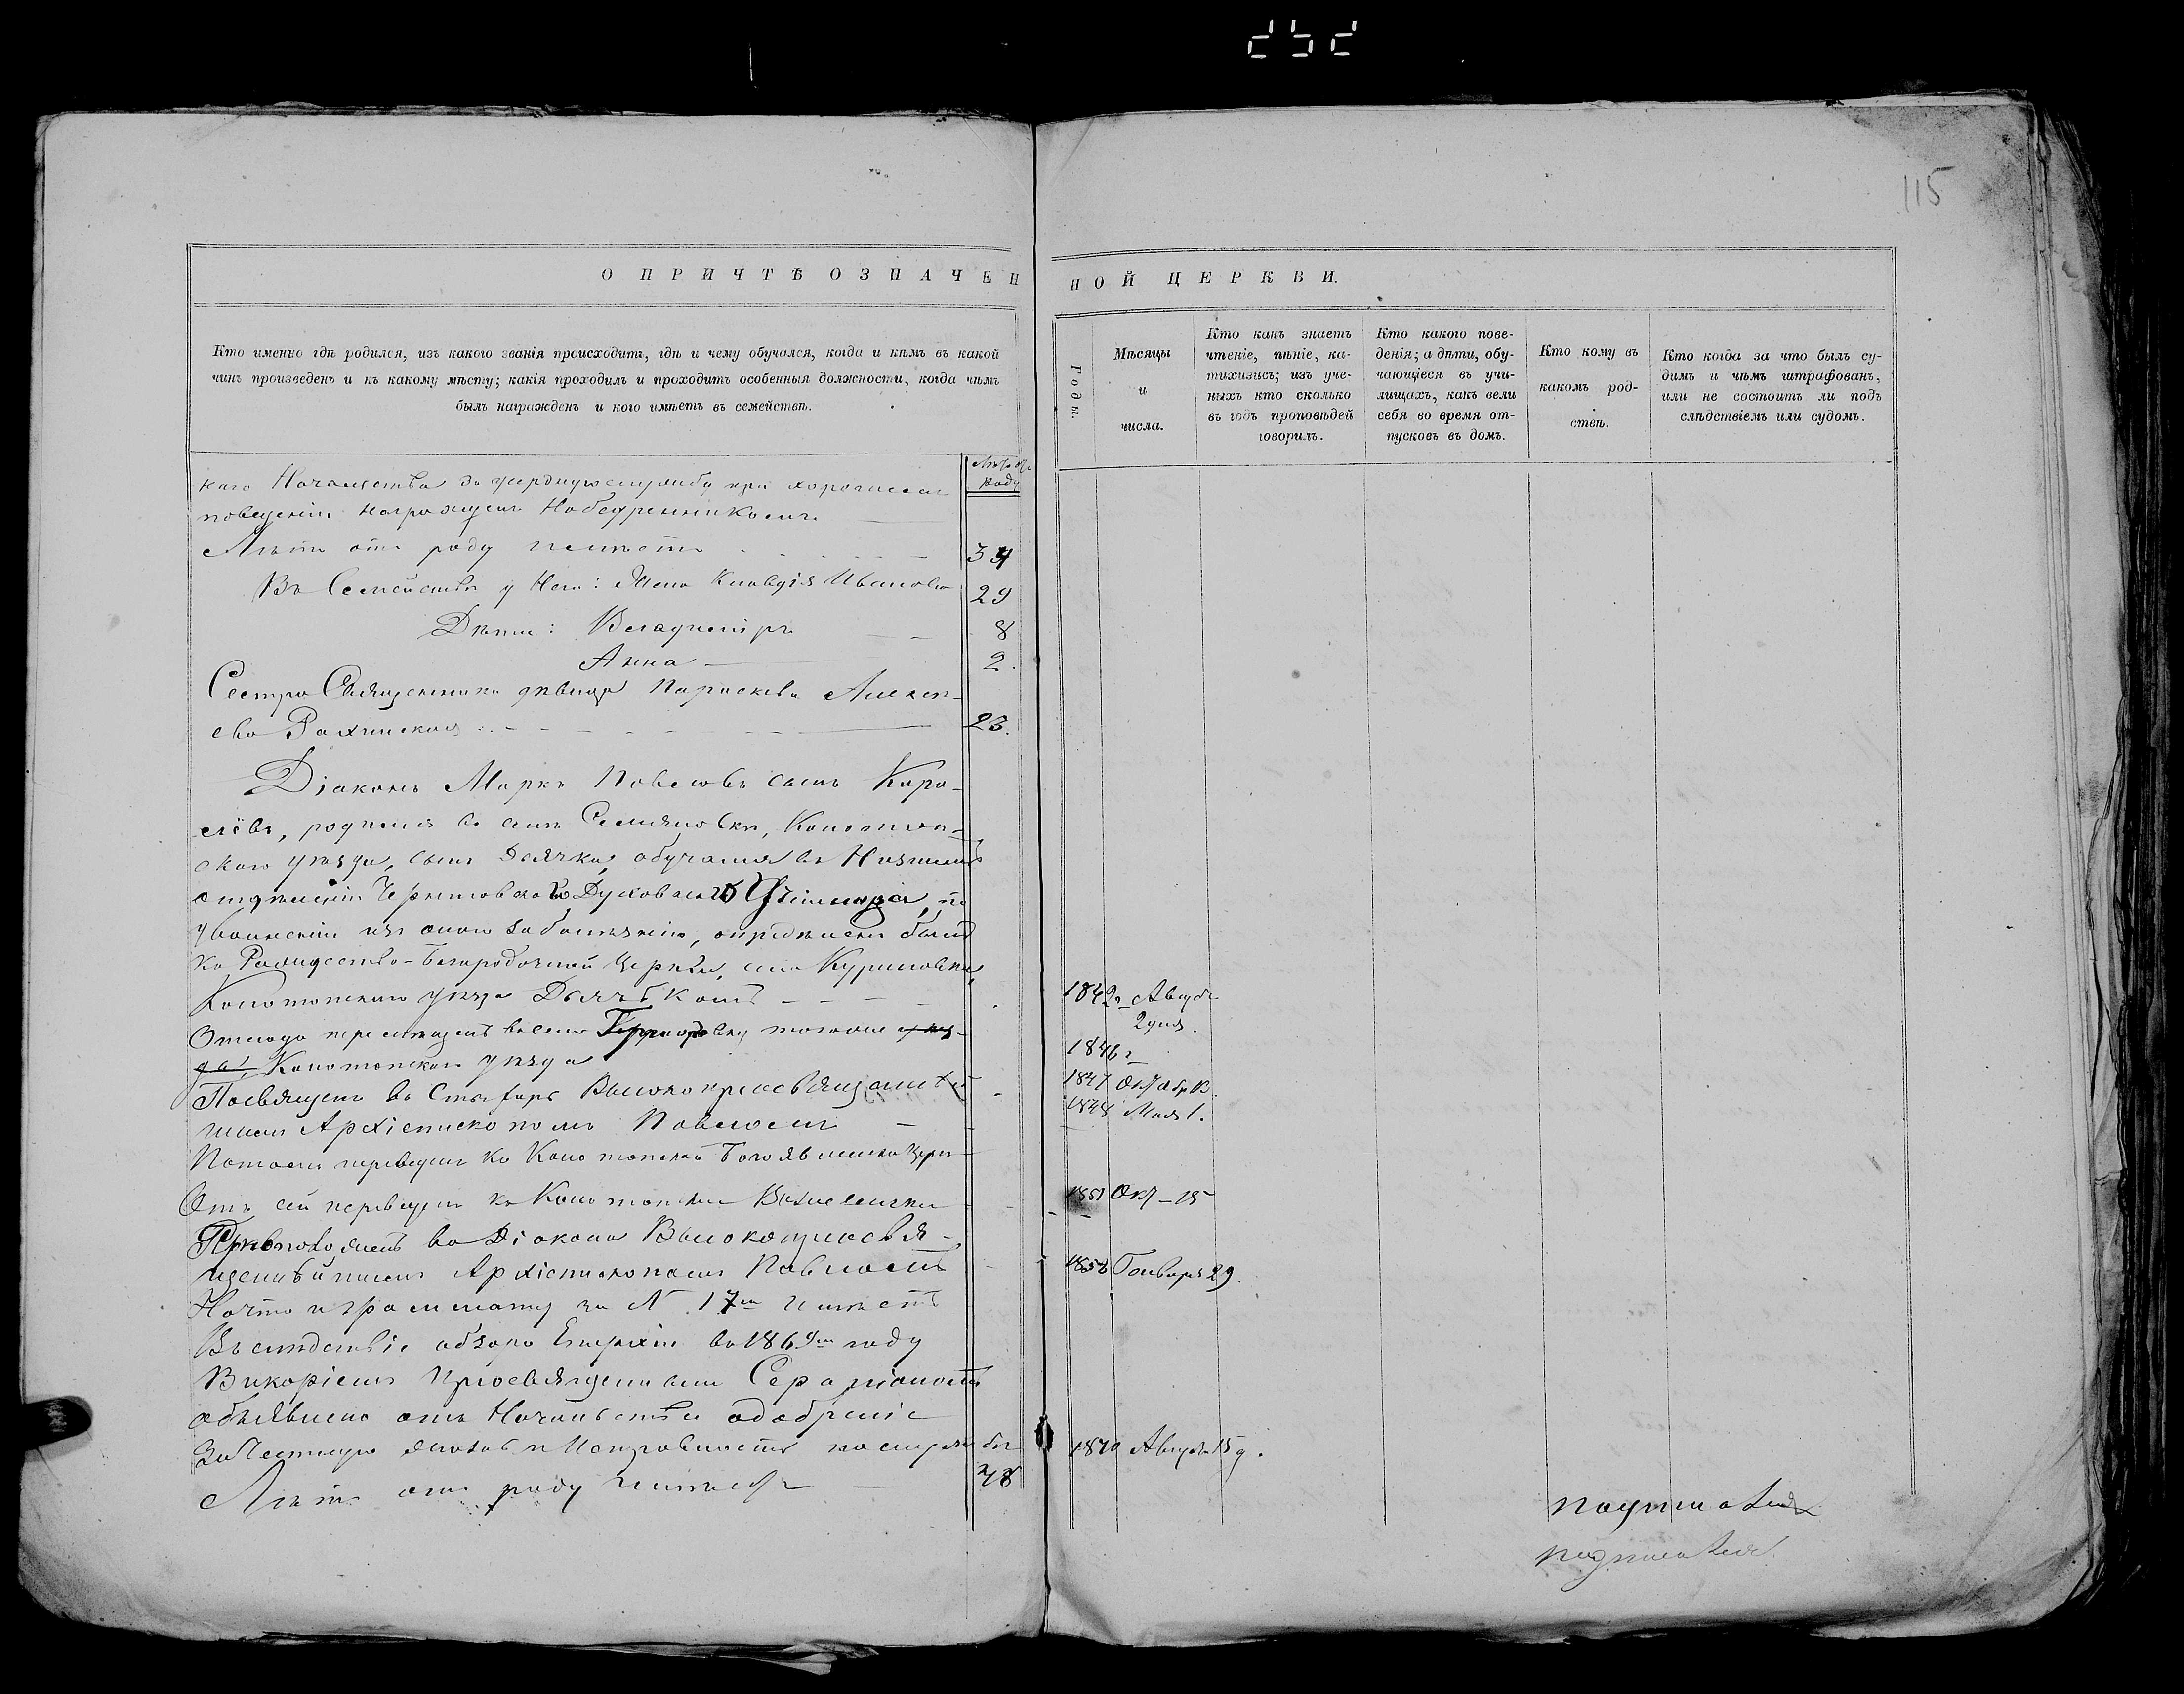 115
О ПРИЧТѢ ОЗНАЧЕННОЙ ЦЕРКВИ.
Кто именно гдѣ родился, изъ какого званія происходитъ, гдѣ и чему обучался, когда и кѣмъ въ какой
чинъ произведенъ и къ какому мѣсту; какія проходилъ и проходитъ особенныя должности, когда чѣмъ
былъ награжденъ и кого имѣетъ въ семействѣ.
Лѣтъ отъ
роду
каго Начальства за усердную службу при хорошемъ
поведеніи награжденъ Набедренникомъ
Лѣтъ отъ роду имѣетъ 34
Въ Семействѣ у Него: Жена Клавдія Иванова 29
Дѣти: Владиміръ 8
Анна 2.
Сестра Священника дѣвица Параскева Алексѣ-
ева 23.
Діаконъ Маркъ Павловъ сынъ Коро-
лёвъ, родился въ селѣ Семяновкѣ, Конотоп-
скаго уѣзда, сынъ Дьячка, обучался въ Низшемъ
отдѣленіи Черниговскаго Духовнаго по
увольненіи изъ онаго за болѣзнію, опредѣленъ былъ
къ Рождество-Богородичной Церкви, села Куриловки,
Конотопскаго уѣзда Дьячкомъ
Отсюда перемѣщенъ въ село тогоже уѣз-
да, Конотопскаго уѣзда
Посвященъ въ Стихарь Высокопреосвященнѣй-
шимъ Архіепископомъ Павломъ
Потомъ переведенъ къ Конотопской Богоявленской Церк
Отъ сей переведенъ къ Конотопской Вознесенской
во Діакона Высокопреосвя-
щеннѣйшимъ Архіепископомъ Павломъ
На что и грамоту за № 17м имѣетъ
Въ слѣдствіе обзора Епархіи въ 1869м году
Викаріемъ Преосвященнымъ Серапіономъ
объявлено отъ Начальства одобреніе
за и Исправность по службѣ
Лѣтъ отъ роду имѣетъ 48
Годы.
Мѣсяцы
и
числа.
Кто какъ знаетъ
чтеніе, пѣніе, ка-
тихизисъ; изъ уче-
ныхъ кто сколько
въ годъ проповѣдей
говорилъ.
Кто какого пове-
денія; а дѣти, обу-
чающіеся въ учи-
лищахъ, какъ вели
себя во время от-
пусковъ въ домъ.
Кто кому въ
какомъ род-
ствѣ.
Кто когда за что былъ су-
димъ и чѣмъ штрафованъ,
или не состоитъ ли подъ
слѣдствіемъ или судомъ.
1842 Августа
2 дня.
1846 г
1847 Октября
1848 Мая 1.
1851 Окт — 15
1853 Генваря 29.
1870 Августа 15 д.